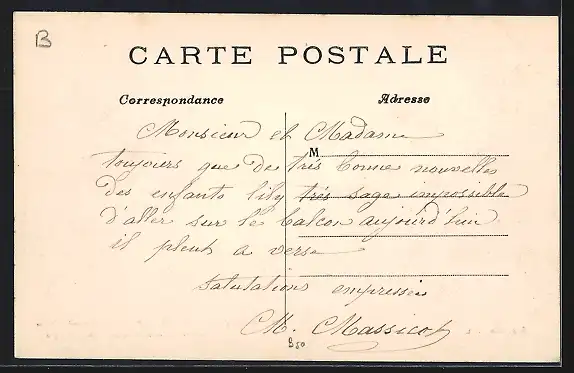 B
CARTE POSTALE
Correspondance
Adresse
Monsieur et Madame
M
toujours que de très bonne nouvelles
des enfants lily très sage impossible
d'aller sur le balcon aujourd'hui
il pleut a verse
salutations empressées
M. Massicot